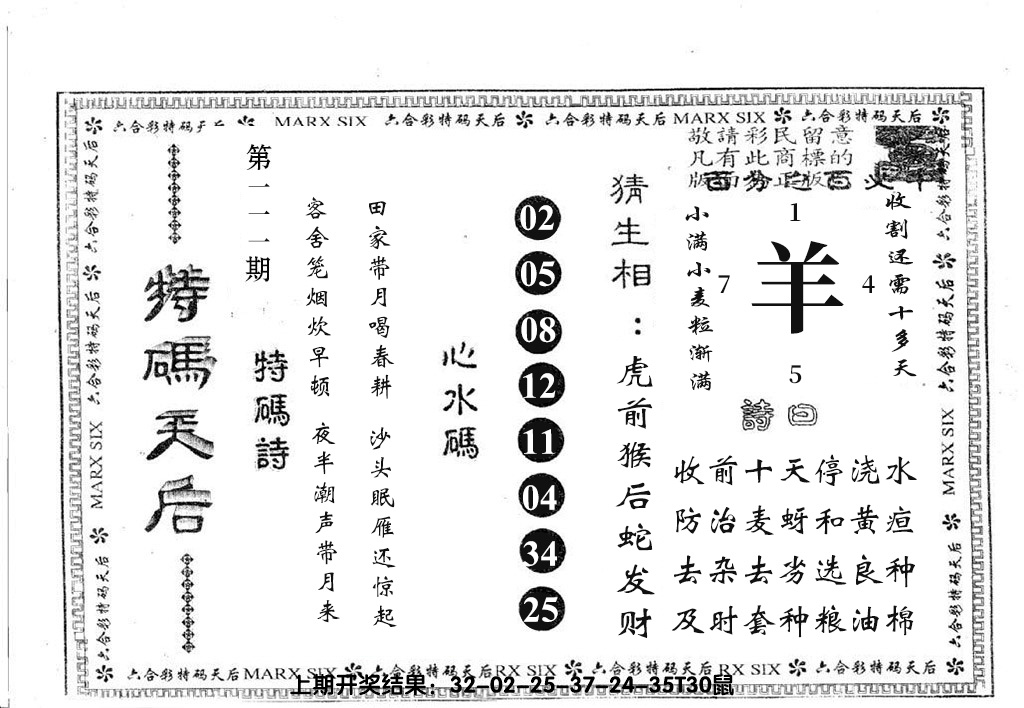 六合彩特码天后 MARX SIX 六合彩特码天后 六合彩特码天后 MARX SIX 六合彩特码天后
敬請彩民留意
凡有此商標的
六合彩特码天后 六合彩特码天后 MARX SIX 六合彩特码天后
特碼天后
第一一一期
特碼詩
客舍笼烟炊早顿 夜半潮声带月来
田家带月喝春耕 沙头眠雁还惊起
心水碼
02
05
08
12
11
04
34
25
猜生相：虎前猴后蛇发财
小满小麦粒渐满
1
7 羊 4
5
收割还需十多天
詩曰
收前十天停浇水
防治麦蚜和黄疸
去杂去劣选良种
及时套种粮油棉
六合彩特码天后 六合彩特码天后 MARX SIX 六合彩特码天后
六合彩特码天后 MARX SIX 六合彩特码天后 RX SIX 六合彩特码天后 RX SIX 六合彩特码天后
上期开奖结果：32-02-25-37-24-35T30鼠